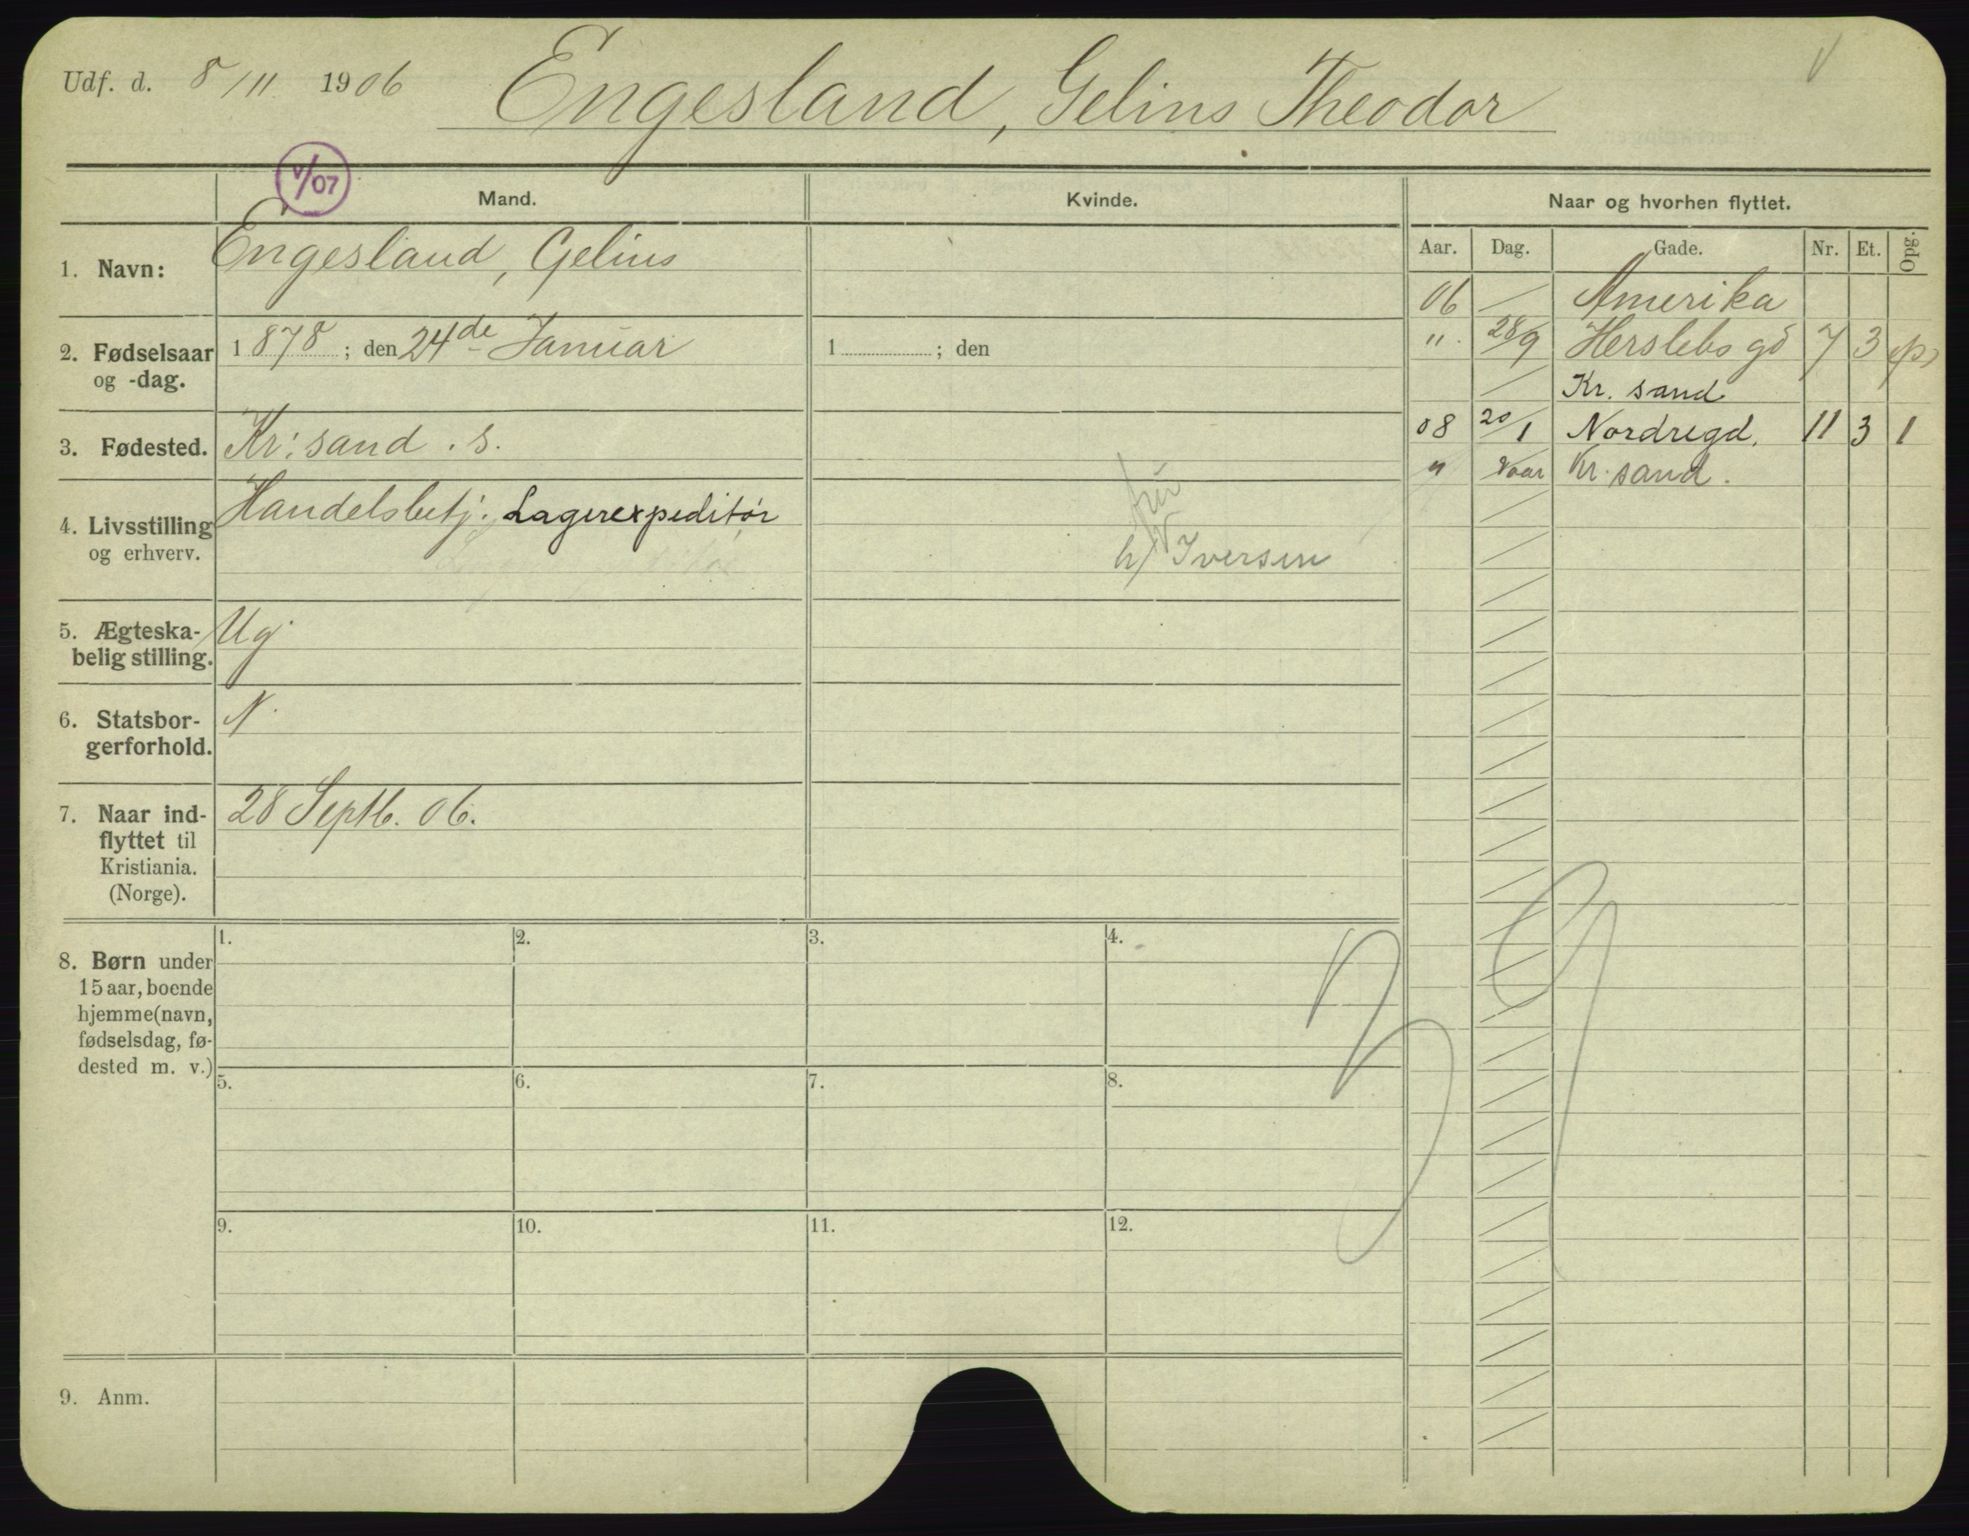 Udf. d. 8/11 1906 Engesland, Gelius Theodor
V
V/07
Mand.
Kvinde.
Naar og hvorhen flyttet.
Aar. Dag. Gade. Nr. Et. Opg.
1. Navn: Engesland, Gelius
2. Fødselsaar og -dag. 1878; den 24de Januar
1 ; den
3. Fødested. Kr: sand . s.
4. Livsstilling og erhverv. Handelsbetj. Lagerexpeditør
h/ Iversen
5. Ægteska-
belig stilling. Ug.
6. Statsbor-
gerforhold. N.
7. Naar ind-
flyttet til
Kristiania.
(Norge).
28 Septb. 06.
06 Amerika
" 28/9 Herslebs gd 7 3
Kr. sand
08 20/1 Nordregd. 11 3 1
" Vaar Kr. sand.
8. Børn under
15 aar, boende
hjemme (navn,
fødselsdag, fø-
dested m. v.)
1. 2. 3. 4.
5. 6. 7. 8.
9. 10. 11. 12.
9. Anm.